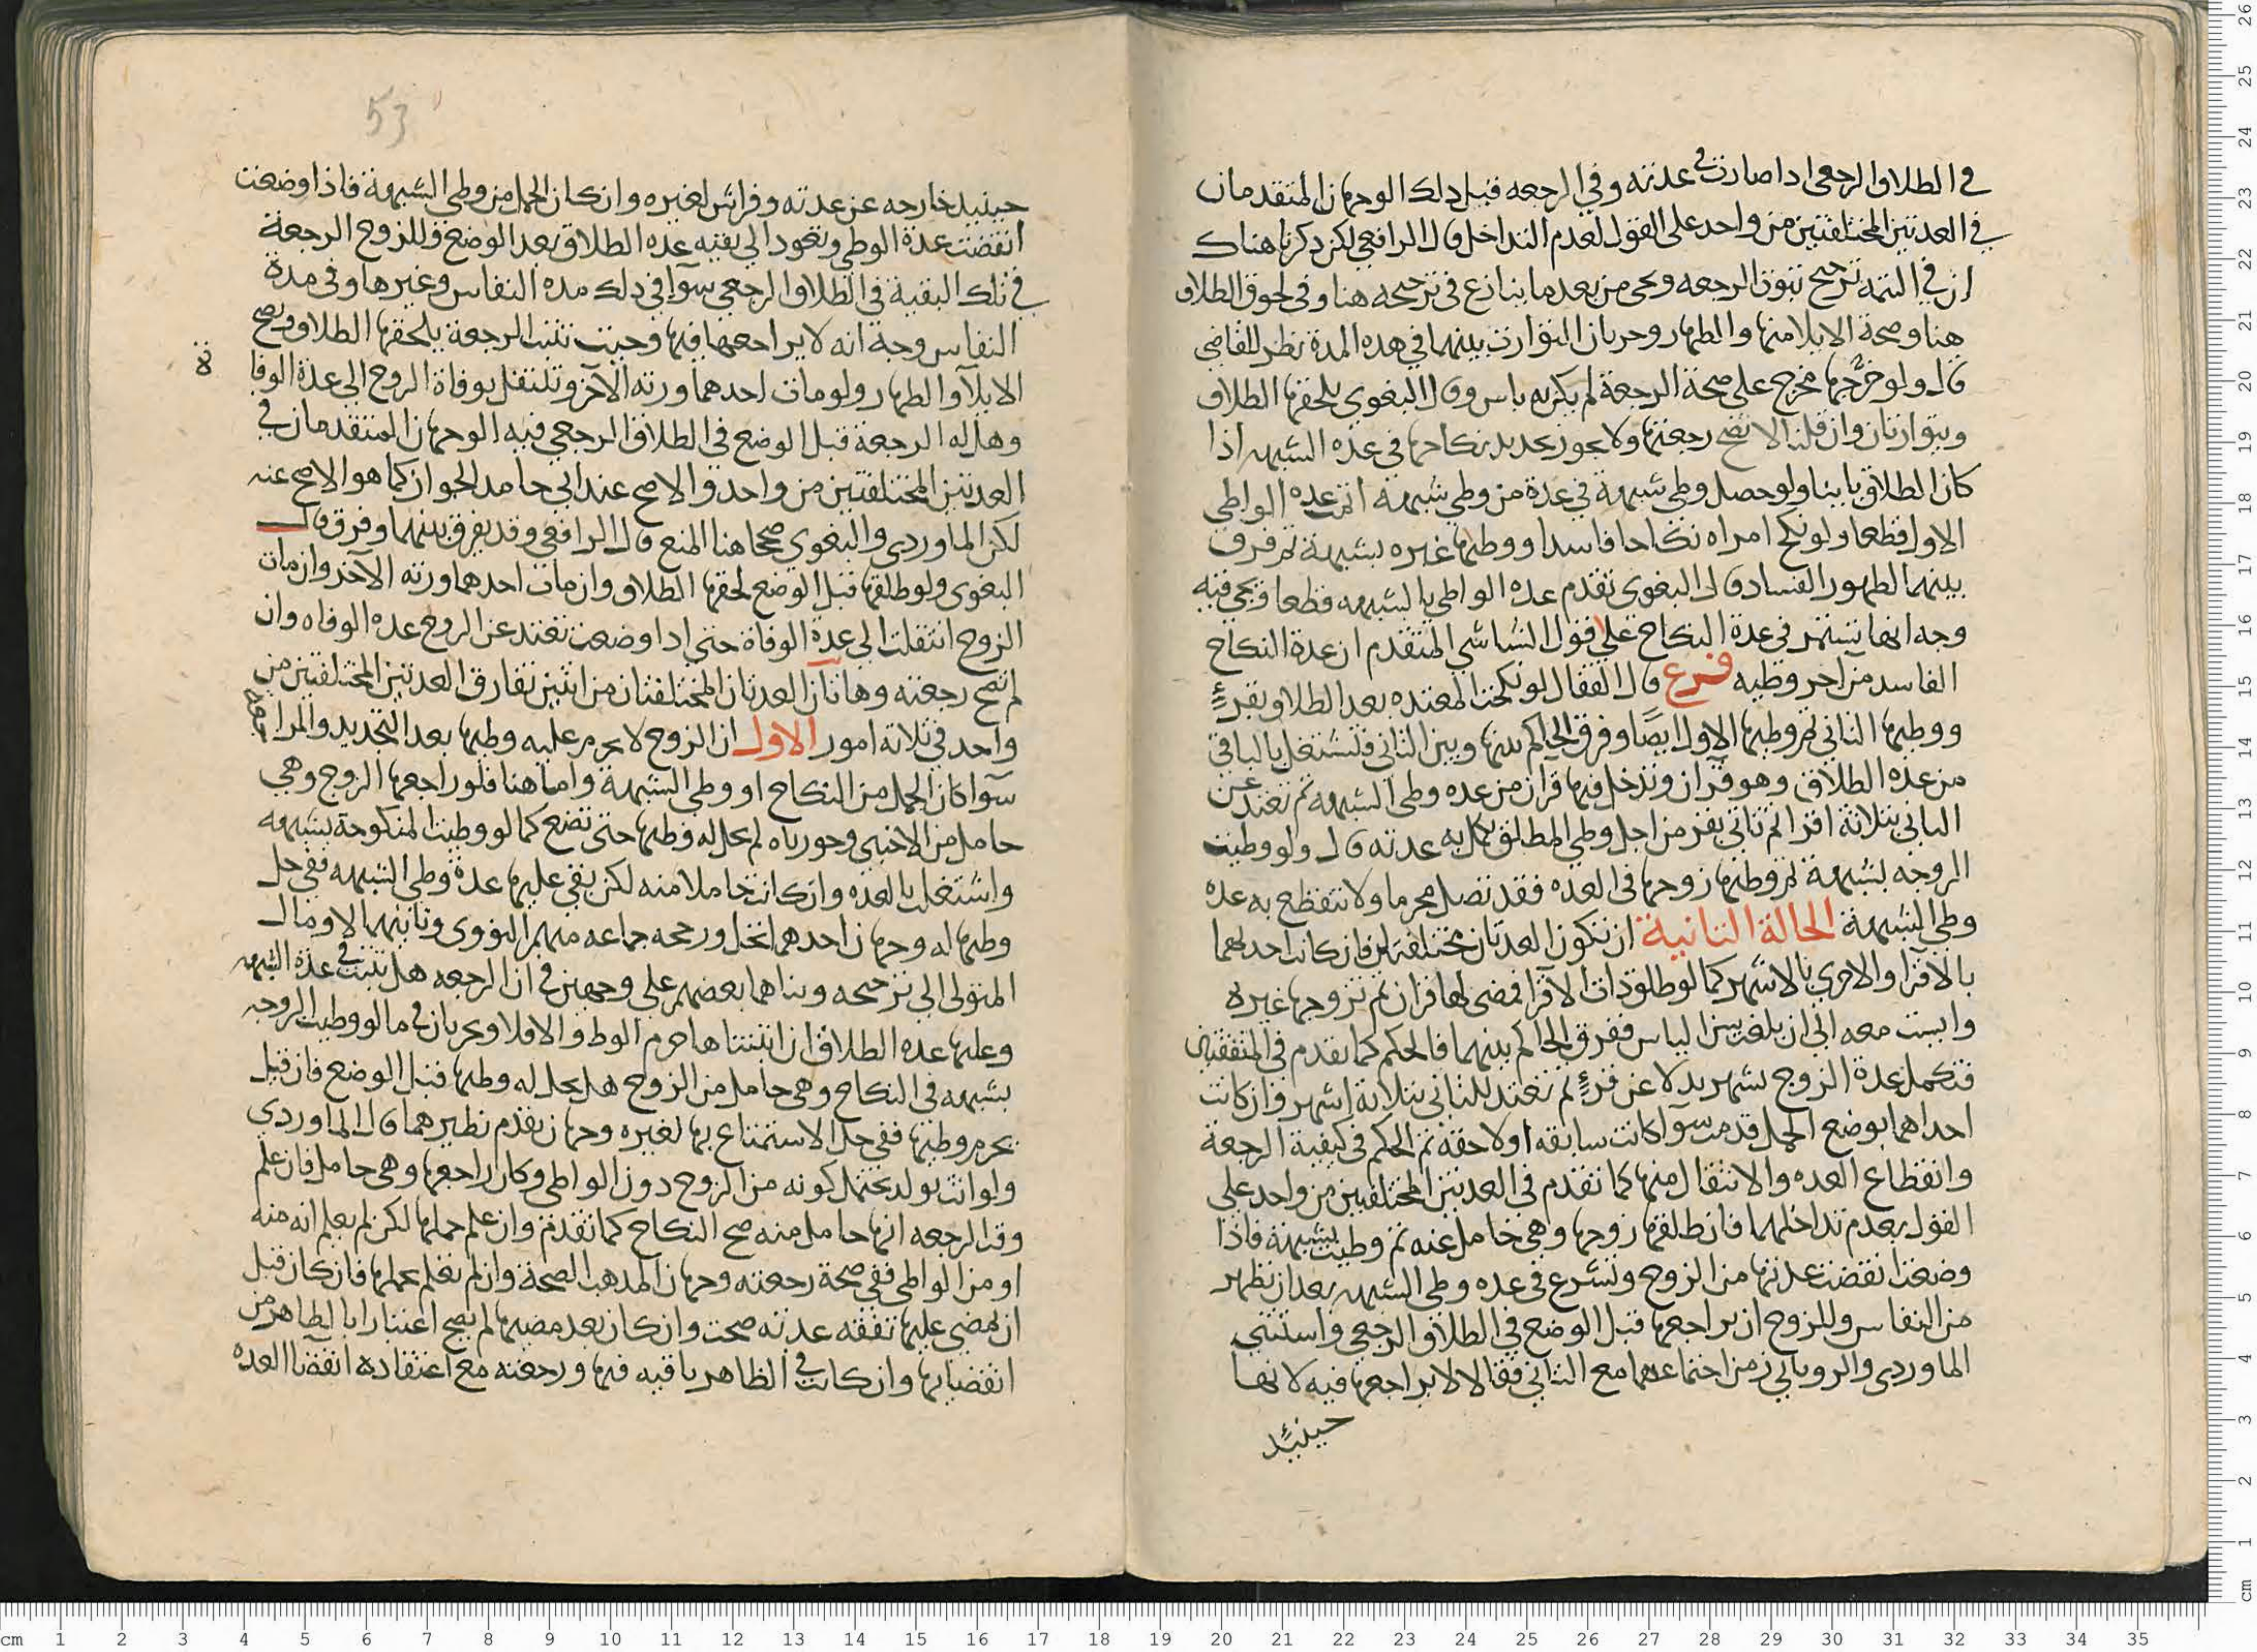 في الطلاق الرجعي اذا صارت في عدته وفي الرجعه قبل ذلك الوجهان المتقدمان
في العدتين المختلفتين من واحد على القول لعدم التداخل قال الرافعي لكن ذكرنا هناك
ان في التتمه ترجيح ثبوت الرجعه ويجي من بعد ما ينازع في ترجيحه هنا وفي لحوق الطلاق
هنا وصحة الايلا منها والظهار وجريان التوارث بينهما في هذه المدة نظر للقاضي
قال ولو خرجها مخرج على صحة الرجعة لم يكن به باس وقال البغوي يلحقها الطلاق
ويتوارثان وان قلنا لا تصح رجعتها ولا يجوز تجديد نكاحها في عدة الشبهه اذا
كان الطلاق باينا ولو حصل وطي شبهة في عدة من وطي شبهة اتمت عدة الواطي
الاول قطعا ولو نكح امراه نكاحا فاسدا ووطيها غيره بشبهة ثم فرق
بينهما لظهور الفساد قال البغوي تقدم عدة الواطي بالشبهه قطعا ويجي فيه
وجه انها تستمر في عدة النكاح على قول الشاشي المتقدم ان عدة النكاح
الفاسد من اخر وطيه فرع قال القفال لو نكحت المعتده بعد الطلاق بقرء
ووطيها الثاني ثم وطيها الاول ايضا وفرق الحاكم بينها وبين الثاني فتشتغل بالباقي
من عدة الطلاق وهو قرآن وتدخل فيها قرآن من عدة وطي الشبهه ثم تعتد عن
الثاني بثلاثة اقرا ثم تاتي بقرء من اجل وطي المطلق يكمل به عدته قال ولو وطيت
الزوجه بشبهة ثم وطيها زوجها في العده فقد تصل محرما ولا تنقطع به عدة
وطي الشبهة الحالة الثانية ان تكون العدتان مختلفتين فان كانت احداهما
بالاقرا والاخرى بالاشهر كما لو طلق ذات الاقرا فمضى لها قرآن ثم تزوجها غيره
وايست معه الى ان بلغت سن الياس ففرق الحاكم بينهما فالحكم كما تقدم في المتفقتين
فتكمل عدة الزوج بشهر بدلا عن قرء ثم تعتد للثاني بثلاثة اشهر وان كانت
احداهما بوضع الحمل قدمت سوا كانت سابقه او لاحقة ثم الحكم في كيفية الرجعة
وانقطاع العده والانتقال منها كما تقدم في العدتين المختلفتين من واحد على
القول بعدم تداخلهما فان طلقها زوجها وهي حامل منه ثم وطيت بشبهة فاذا
وضعت انقضت عدتها من الزوج وتشرع في عدة وطي الشبهه بعد ان تطهر
من النفاس وللزوج ان يراجعها قبل الوضع في الطلاق الرجعي واستثنى
الماوردي والروياني زمن اجتماعهما مع الثاني فقالا لا يراجعها فيه لانها
حينئذ
53
حينيذ خارجه عن عدته وفراش لغيره وان كان الحمل من وطي الشبهة فاذا وضعت
انقضت عدة الوطي وتعود الى بقيه عدة الطلاق بعد الوضع وللزوج الرجعة
في تلك البقية في الطلاق الرجعي سوا في ذلك مدة النفاس وغيرها وفي مدة
النفاس وجة انه لا يراجعها فيها وحيث تثبت الرجعة يلحقها الطلاق ويصح
الايلا والظهار ولو مات احدهما ورثه الآخر وتنتقل بوفاة الزوج الى عدة الوفا
ة
وهل له الرجعة قبل الوضع في الطلاق الرجعي فيه الوجهان المتقدمان في
العدتين المختلفتين من واحد والاصح عند ابي حامد الجواز كما هو الاصح عنه
لكن الماوردي والبغوي صححا هنا المنع قال الرافعي وقد يفرق بينهما وفرق قال
البغوي ولو طلقها قبل الوضع لحقها الطلاق وان مات احدهما ورثه الآخر وان مات
الزوج انتقلت الى عدة الوفاة حتى اذا وضعت تعتد عن الزوج عدة الوفاه وان
لم تصح رجعته وهاتان العدتان المختلفتان من اثنين تفارق العدتين المختلفتين من
واحد في ثلاثة امور الاول ان الزوج لا يحرم عليه وطيها بعد التجديد والمراجعه
سوا كان الحمل من النكاح او وطي الشبهة واما هنا فلو راجعها الزوج وهي
حامل من الاجنبي وجوزناه لم يحل له وطيها حتى تضع كما لو وطيت المنكوحة بشبهه
واشتغلت بالعده وان كانت حاملا منه لكن بقي عليها عدة وطي الشبهه ففي حل
وطيها له وجهان احدهما لحل ورجحه جماعه منهم النووي وثانيهما لا ومال
المتولى الى ترجيحه وبناهما بعضهم على وجهين في ان الرجعه هل تثبت في عدة الشبهه
وعليها عدة الطلاق ان اثبتناها حرم الوطو الا فلا ويجريان في ما لو وطيت الزوجه
بشبهه في النكاح وهي حامل من الزوج هل يحل له وطيها قبل الوضع فان قيل
يحرم وطيها ففي حل الاستمتاع بها لغيره وجهان تقدم نظيرهما قال الماوردي
ولو اتت بولد يحتمل كونه من الزوج دون الواطي وكان راجعها وهي حامل فان علم
وقت الرجعه انها حامل منه صح النكاح كما تقدم وان علم حملها لكن لم يعلم انه منه
او من الواطي ففي صحة رجعته وجهان المذهب الصحة وان لم يعلم بحملها فان كان قبل
ان يمضي عليها تفقه عدته صحت وان كان بعد مضيها لم يصح اعتبارا بالظاهر من
انقضايها وان كانت في الظاهر باقيه فيها ورجعته مع اعتقاده انقضا العده